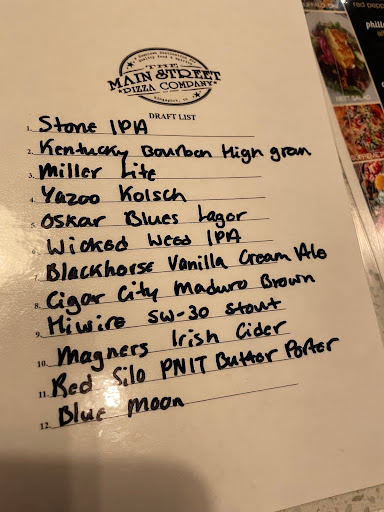 A Downtown Destination for
Quality Food & Spirits
THE
MAIN STREET
PIZZA COMPANY
Kingsport, TN
DRAFT LIST
1. Stone IPA
2. Kentucky Bourbon High gran
3. Miller Lite
4. Yazoo Kolsch
5. Oskar Blues Lager
6. Wicked Weed IPA
7. Blackhorse Vanilla Cream Ale
8. Cigar City Maduro Brown
9. Hiwire SW-30 Stout
10. Magners Irish Cider
11. Red Silo PNIT Butter Porter
12. Blue Moon
red pepp